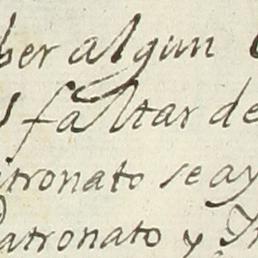 ber algun
faltar de
tronato se ay
Patronato y